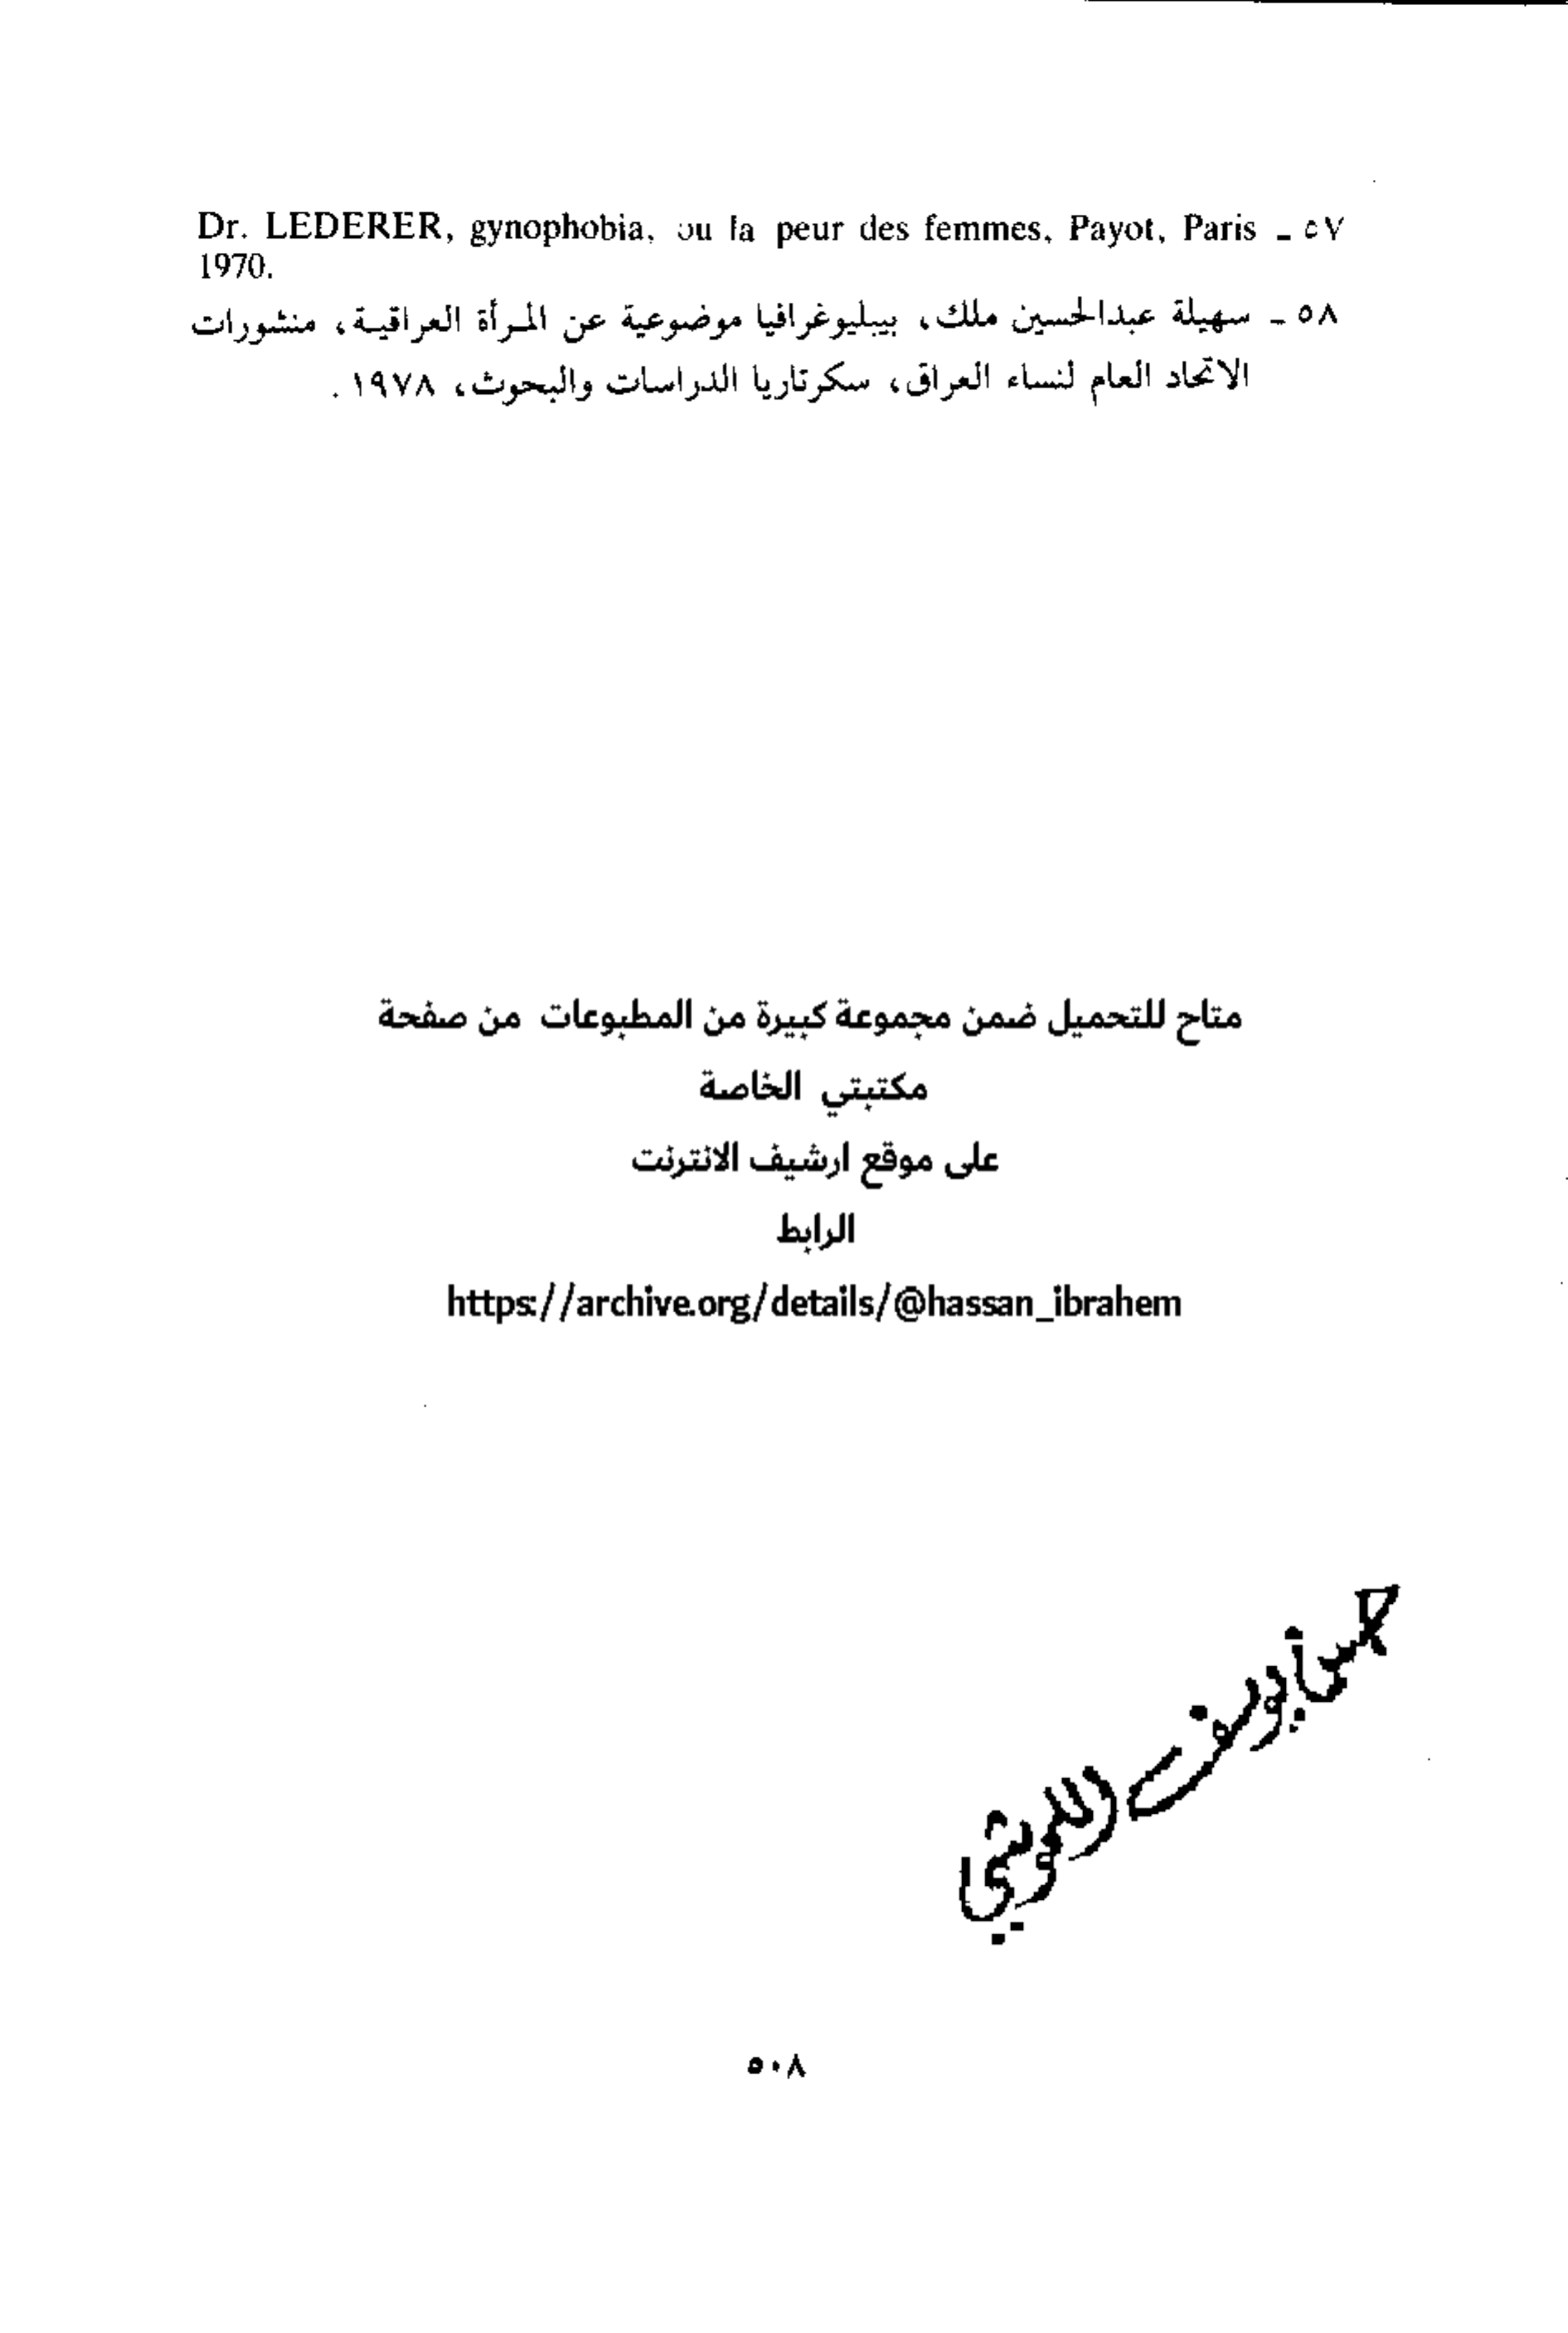 Dr. LEDERER, gynophobia, ou la peur des femmes, Payot, Paris ـ ٥٧
1970.
٥٨ ـ سهيلة عبدالحسين ملك، بيبليوغرافيا موضوعية عن المرأة العراقية، منشورات
الاتحاد العام لنساء العراق، سكرتاريا الدراسات والبحوث، ١٩٧٨ .
متاح للتحميل ضمن مجموعة كبيرة من المطبوعات من صفحة
مكتبتي الخاصة
على موقع ارشيف الانترنت
الرابط
https://archive.org/details/@hassan_ibrahem
٥٠٨